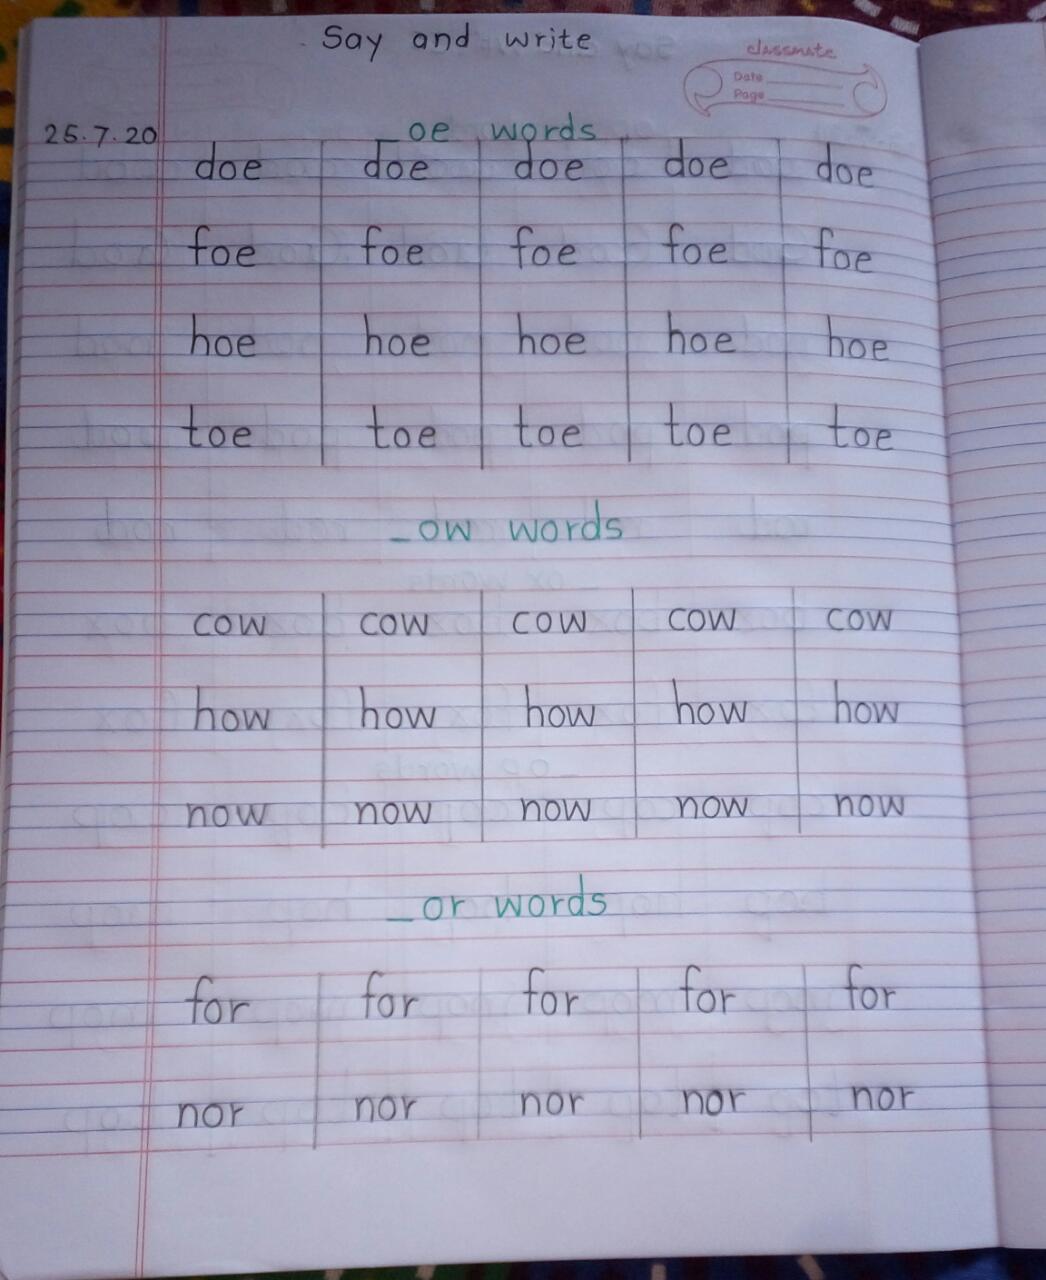 Say and write
classmate
Date
Page
25.7.20
_oe words
doe doe doe doe doe
foe foe foe foe foe
hoe hoe hoe hoe hoe
toe toe toe toe toe
_ow words
cow cow cow cow cow
how how how how how
now now now now now
_or words
for for for for for
nor nor nor nor nor